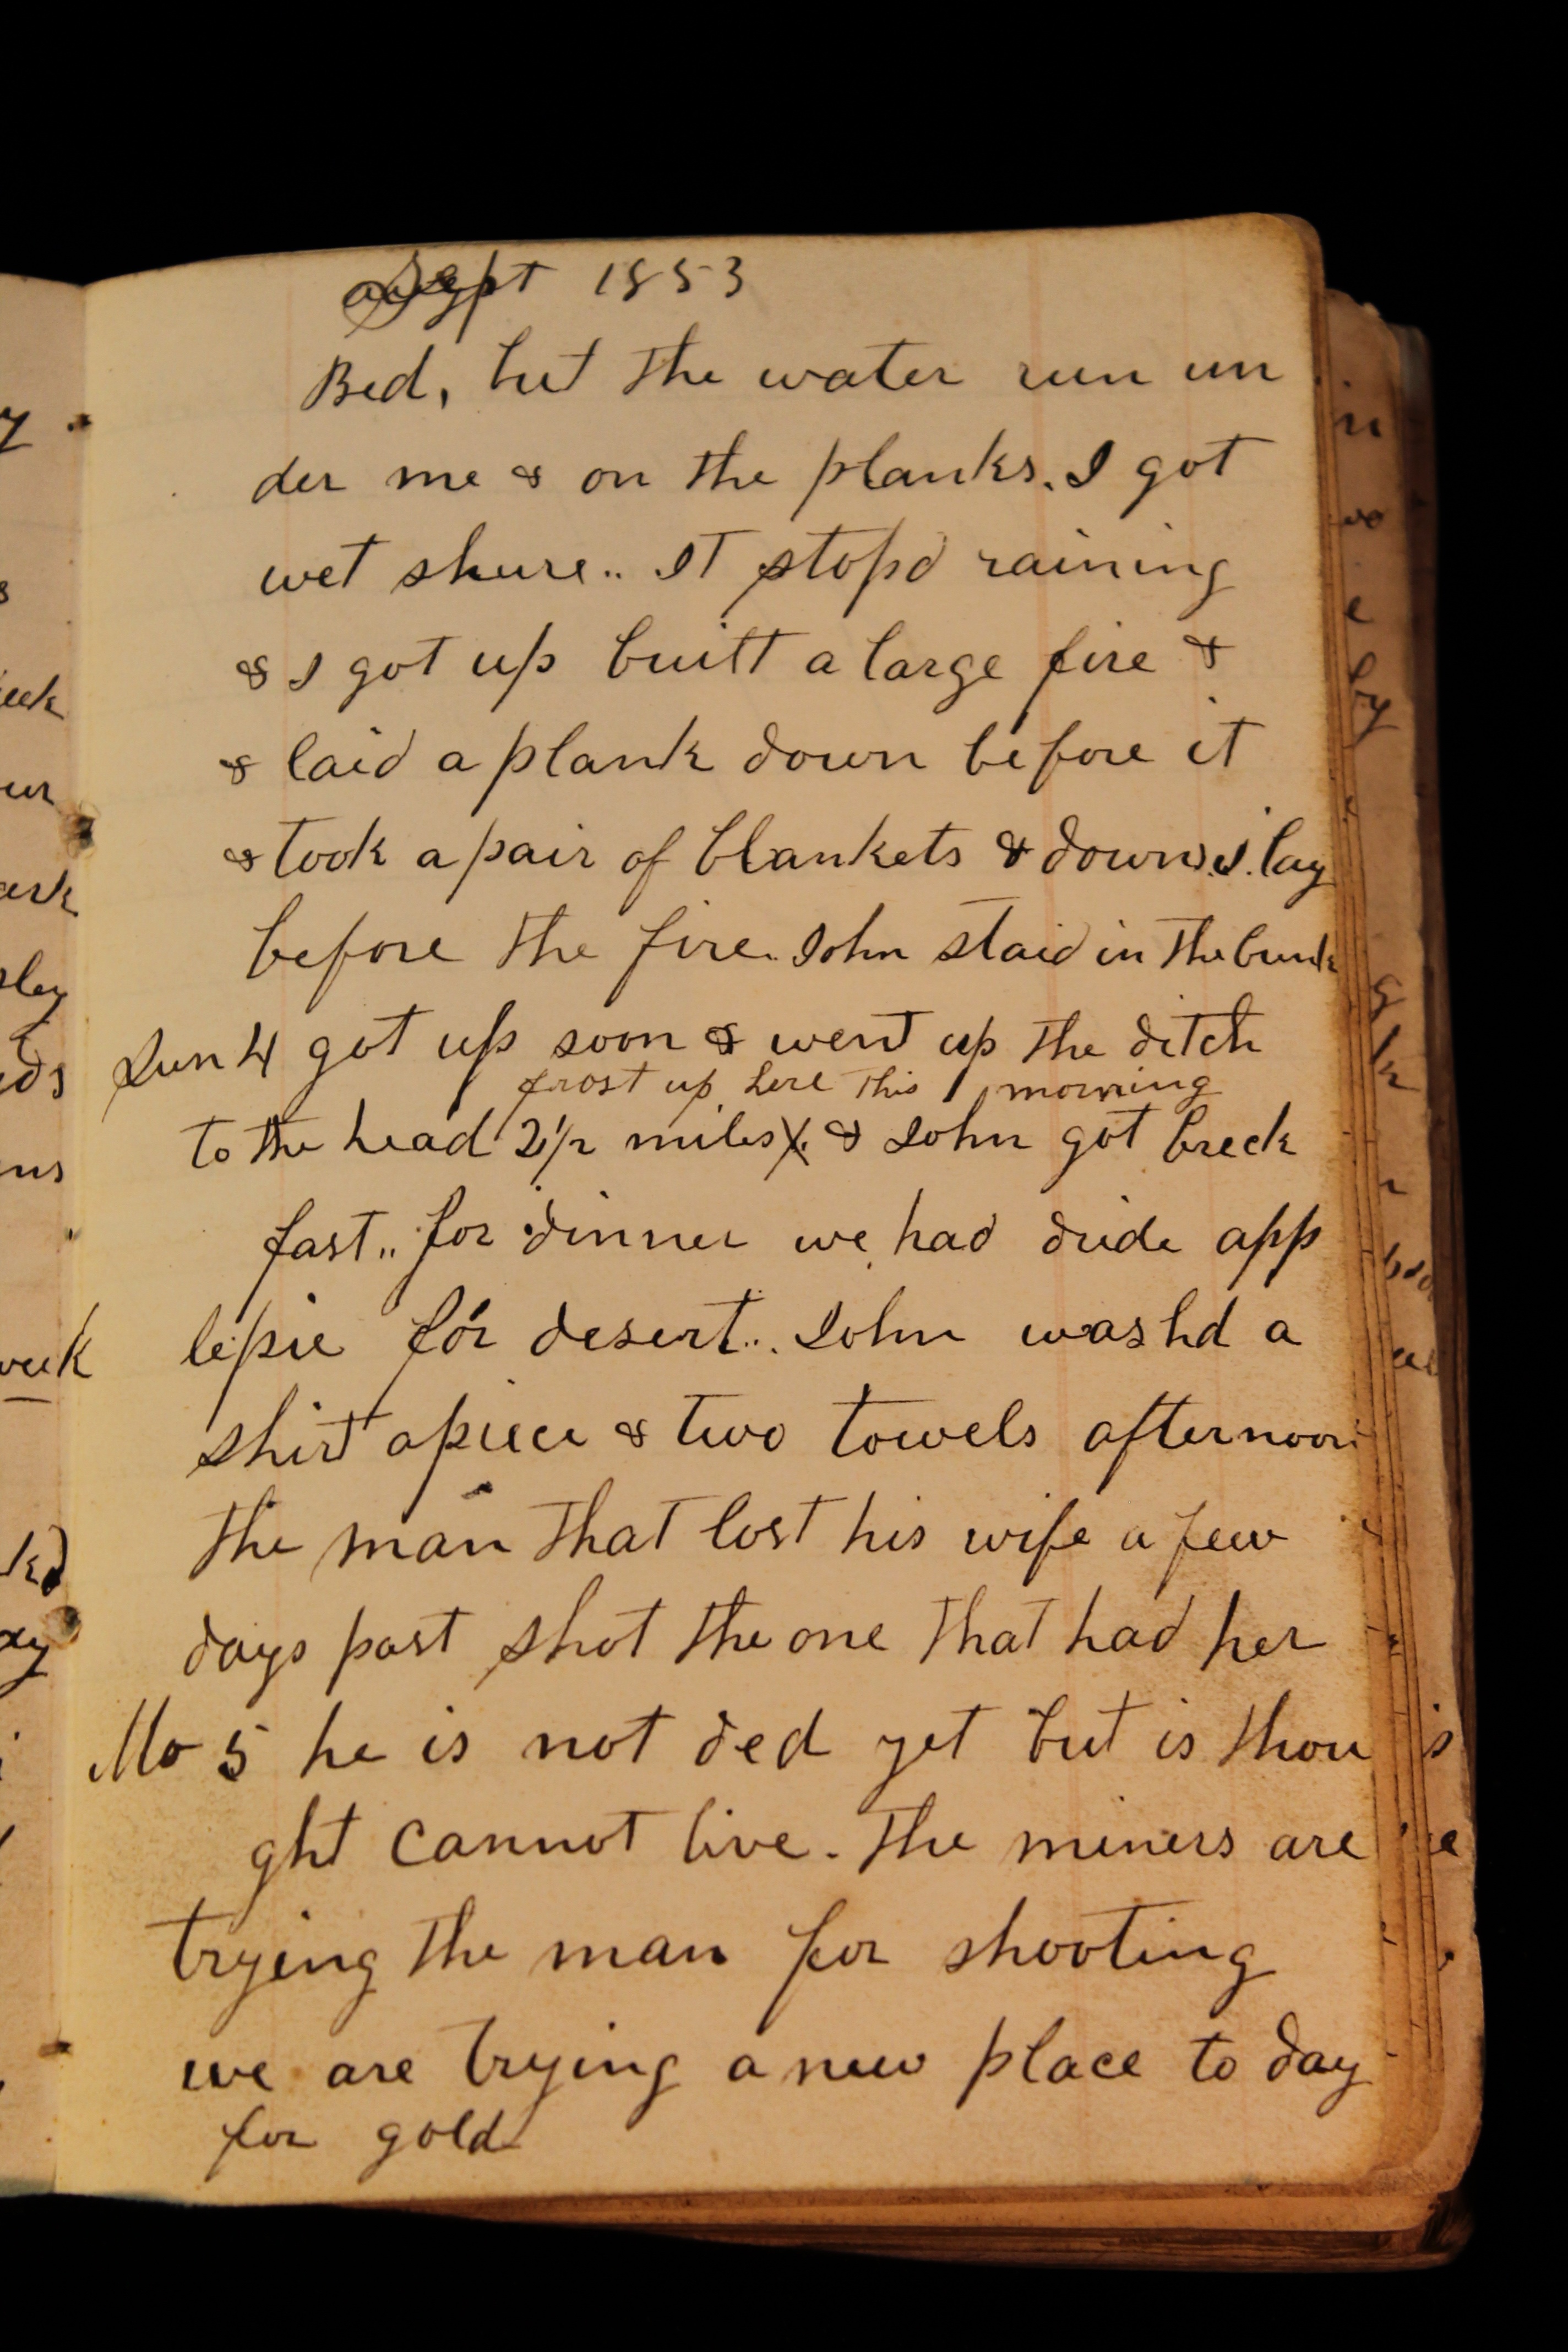 Sept 1853
Bed, but the water run un
der me & on the planks. I got
wet shure.. It stopd raining
& I got up built a large fire &
& laid a plank down before it
& took a pair of blankets & down I lay
before the fire. John staid in the bunk
Sun 4 got up soon & went up the ditch
frost up here this morning
to the head 2 1/2 miles X. & John got breck
fast.. for dinner we had dride app
lepie for desert.. John washd a
shirt apiece & two towels afternoon
the man that lost his wife a few
days past shot the one that had her
Mo 5 he is not ded yet but is thou
ght cannot live. The miners are
trying the man for shooting
we are trying a new place to day
for gold